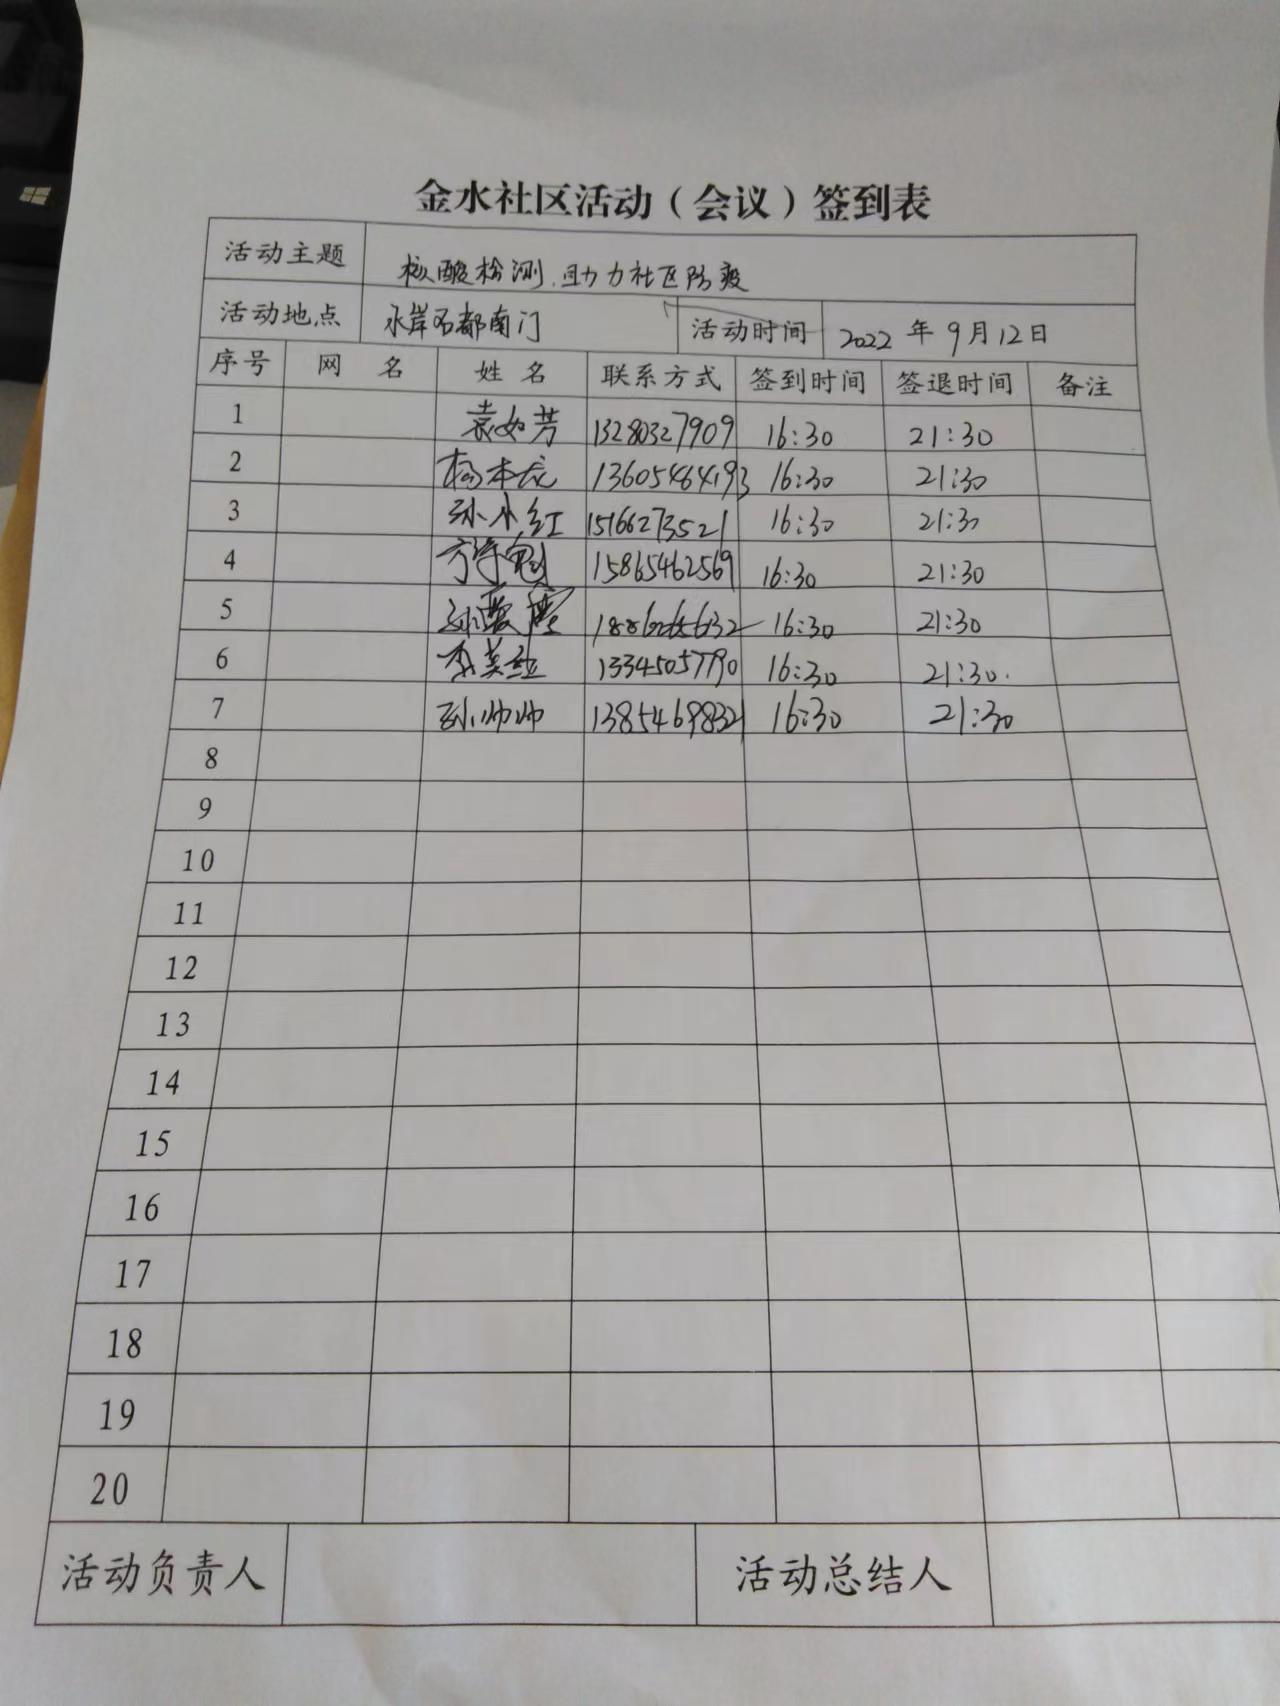 金水社区活动（会议）签到表
活动主题 核酸检测，助力社区防疫
活动地点 水岸名都南门 活动时间 2022年9月12日
序号 网名 姓名 联系方式 签到时间 签退时间 备注
1 袁如芳 13280327909 16:30 21:30
2 杨本龙 13605464193 16:30 21:30
3 孙小红 15166273521 16:30 21:30
4 15865462569 16:30 21:30
5 16:30 21:30
6 李英 13345057790 16:30 21:30.
7 孙帅帅 13854698321 16:30 21:30
8
9
10
11
12
13
14
15
16
17
18
19
20
活动负责人 活动总结人